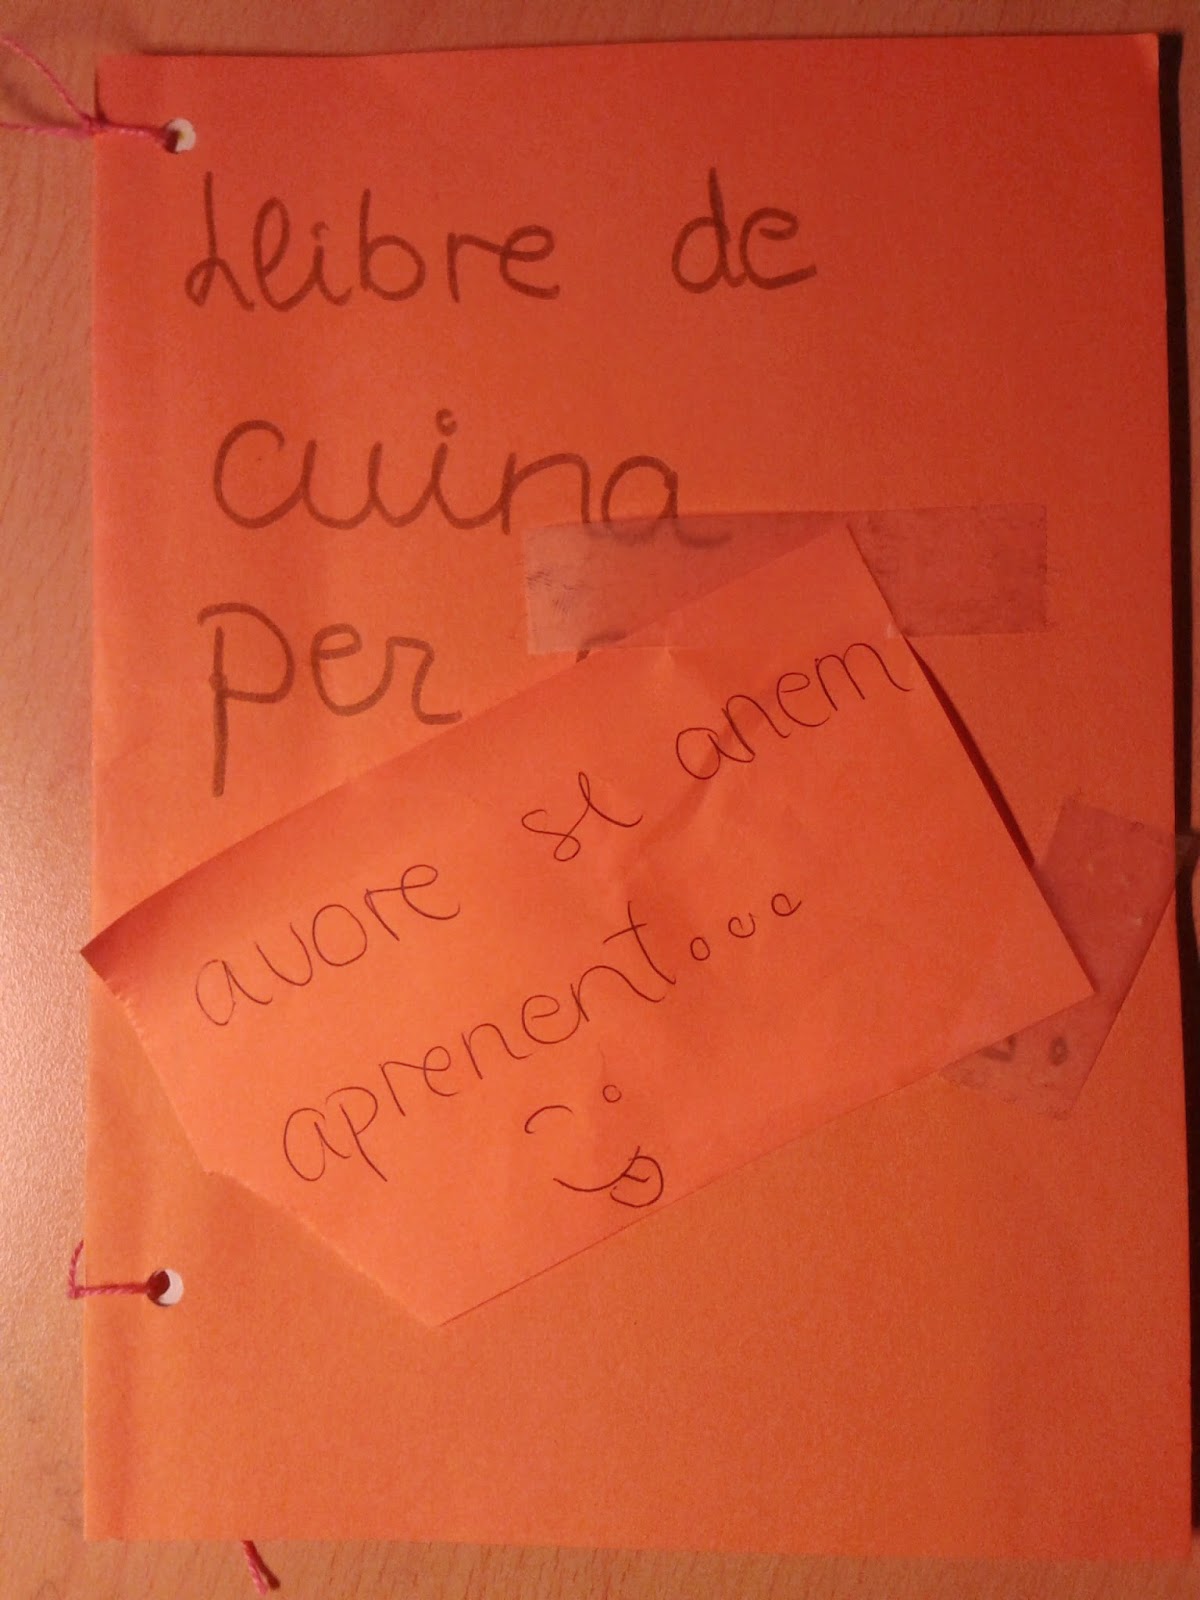 Llibre de
cuina
per
avore se anem
aprenent...